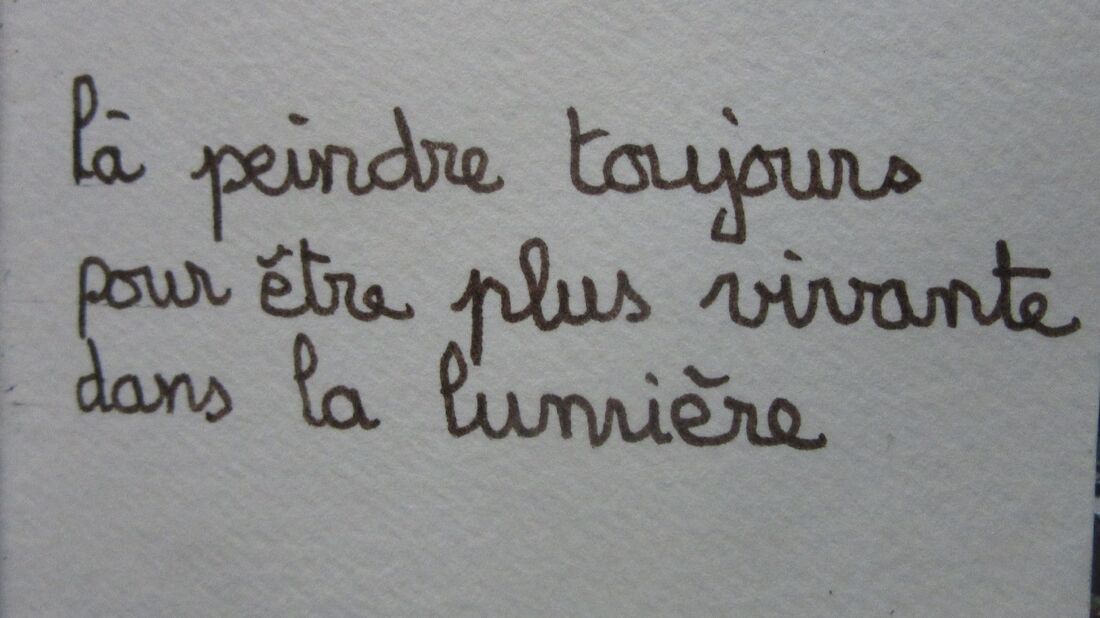 là peindre toujours
pour être plus vivante
dans la lumière